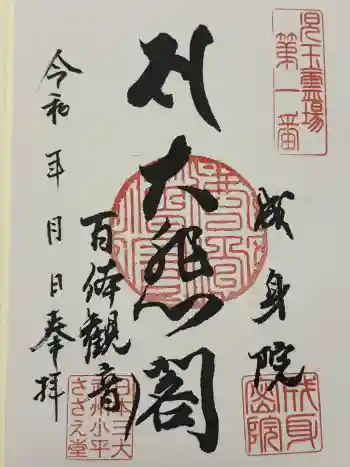 児玉霊場
第一番
成身院
大悲閣
百体観音
令和 年 月 日 奉拝
成身
密院
日本三大
武州小平
さざえ堂